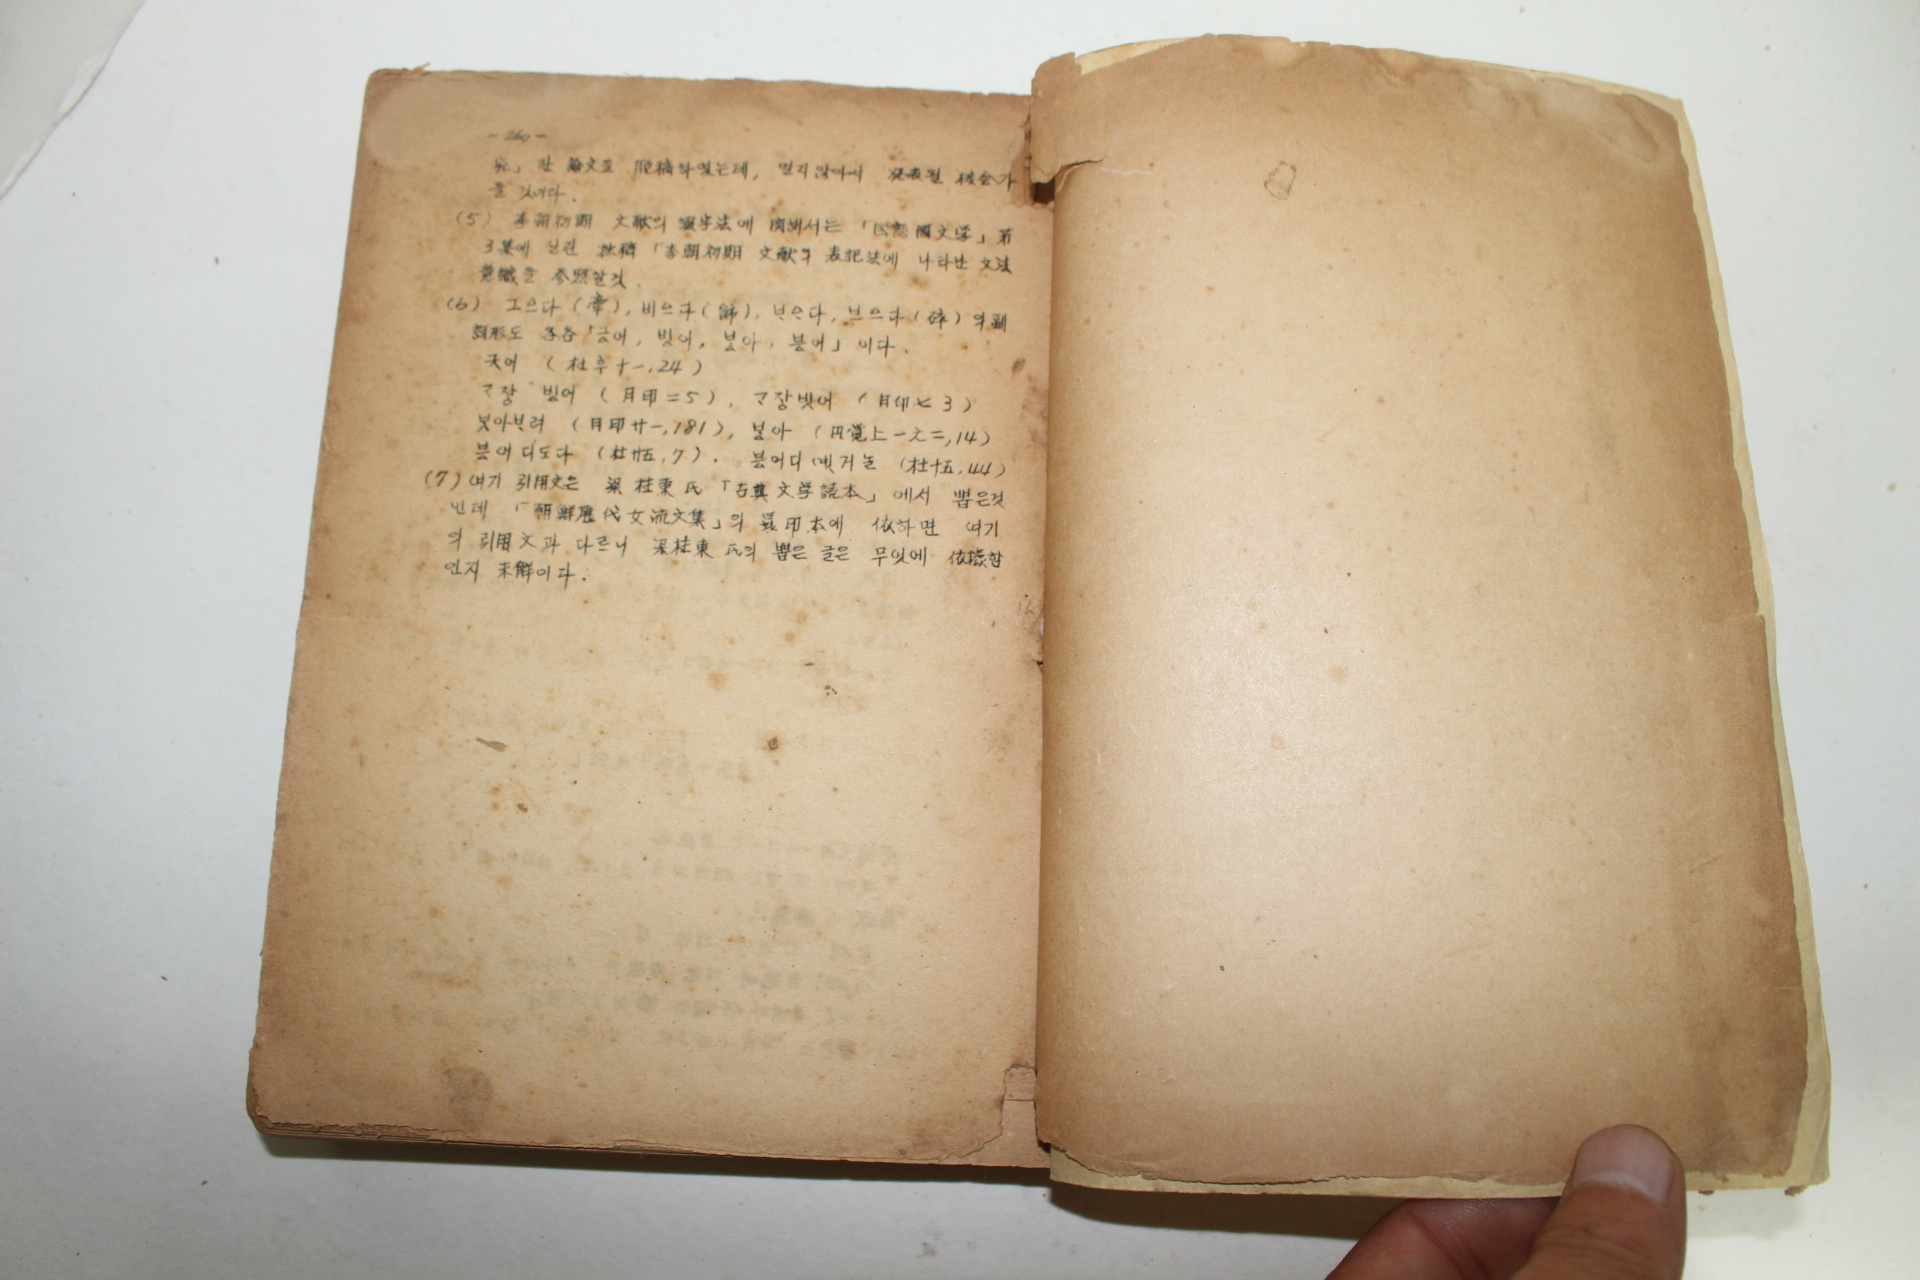 - 260 -
究」란 論文으로 脫稿하였는데, 멀지않아서 發表될 機会가
올 것이다.
(5) 李朝初期 文献의 綴字法에 関해서는 「国語國文学」 第
3集에 실린 拙稿 「李朝初期 文献의 表記法에 나타난 文法
意識을 参照할것.
(6) 그으다 ( ), 비으다 (飾), 는으다, 브으다 (碎) 의
形도 各各 「긋어, 빗어, 봇아, 붓어」 이다.
긋어 ( 杜 十一, 24 )
ᄀ장 빗어 ( 月印 二 5 ), ᄀ장 빗어 ( 月印 七 3 )
봇아ᄇ려 ( 月印 廿一, 181 ), 봇아 ( 円覚上 一之二, 14 )
븟어 디도다 ( 杜 廿五, 7 ). 븟어디 거늘 ( 杜十五, 44 )
(7) 여기 引用文은 梁柱東氏 「古典文学読本」 에서 뽑은것
인데 「朝鮮歷代女流文集」의 景印本에 依하면 여기
의 引用文과 다르니 梁柱東氏의 뽑은 글은 무엇에 依據함
인지 未解이다.